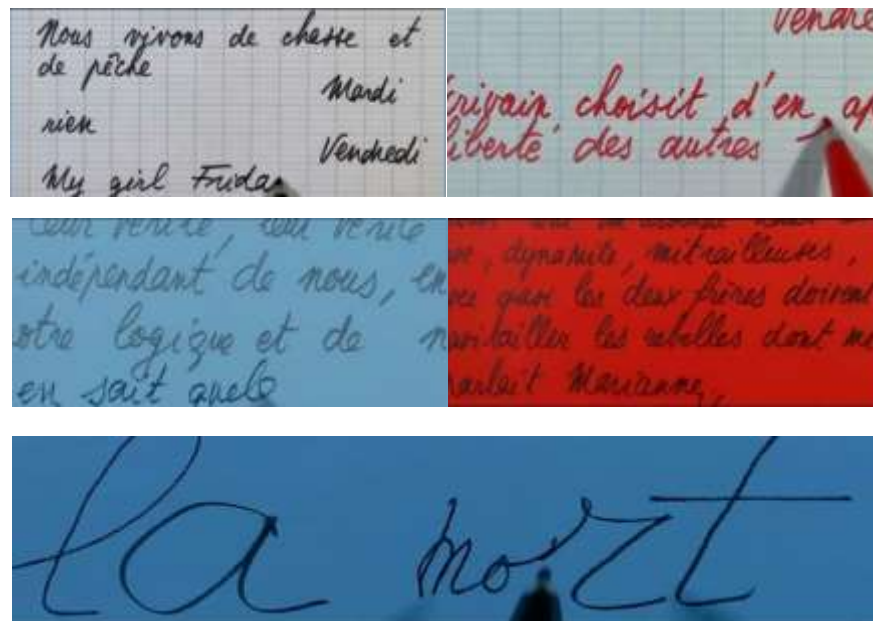 Nous vivons de chasse et
de pêche
Mardi
rien
Vendredi
My girl Frida
Vendre
crivain choisit d'en ap
liberté des autres
leur vérité, leur vérité
indépendant de nous, en
otre logique et de n
en sait quelq
, dynamite, mitrailleuses,
que les deux frères doivent
ravitailler les rebelles dont m
parlait Marianne,
la mort